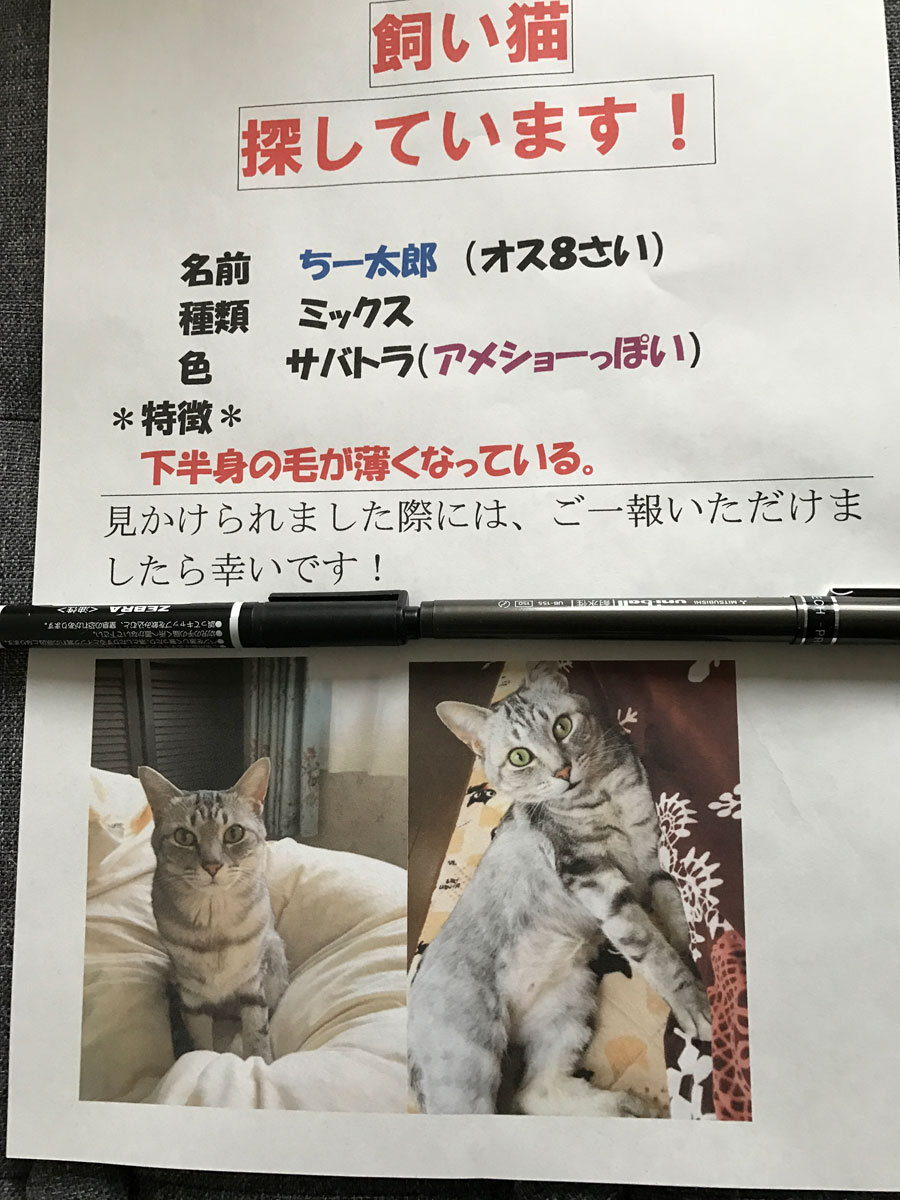 飼い猫
探しています！
名前 ちー太郎 (オス8さい)
種類 ミックス
色 サバトラ(アメショーっぽい)
＊特徴＊
下半身の毛が薄くなっている。
見かけられました際には、ご一報いただけま
したら幸いです！
ZEBRA <油性>
MITSUBISHI uni-ball 耐水性 UB-155 150